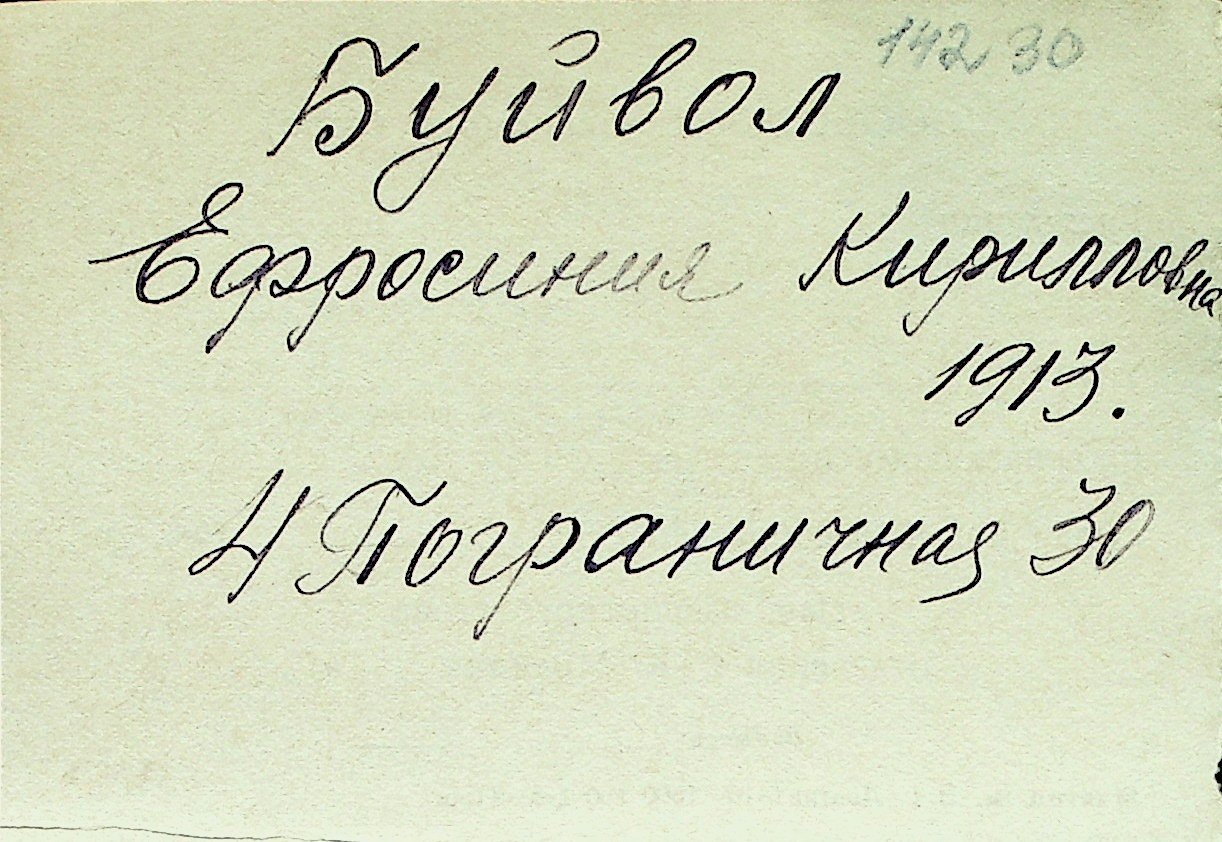 142 30
Буйвол
Ефросиния Кирилловна
1913.
4 Пограничная 30